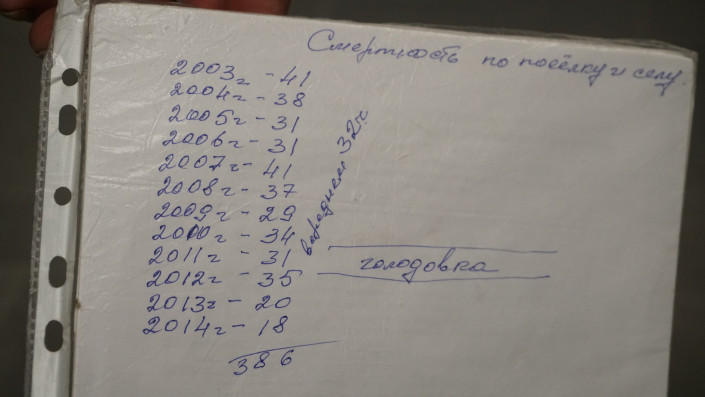 Смертность по посёлку и селу.
2003г - 41
2004г - 38
2005г - 31
2006г - 31
2007г - 41
2008г - 37
2009г - 29
2010г - 34
2011г - 31
2012г - 35
2013г - 20
2014г - 18
386
в среднем 32ч.
голодовка